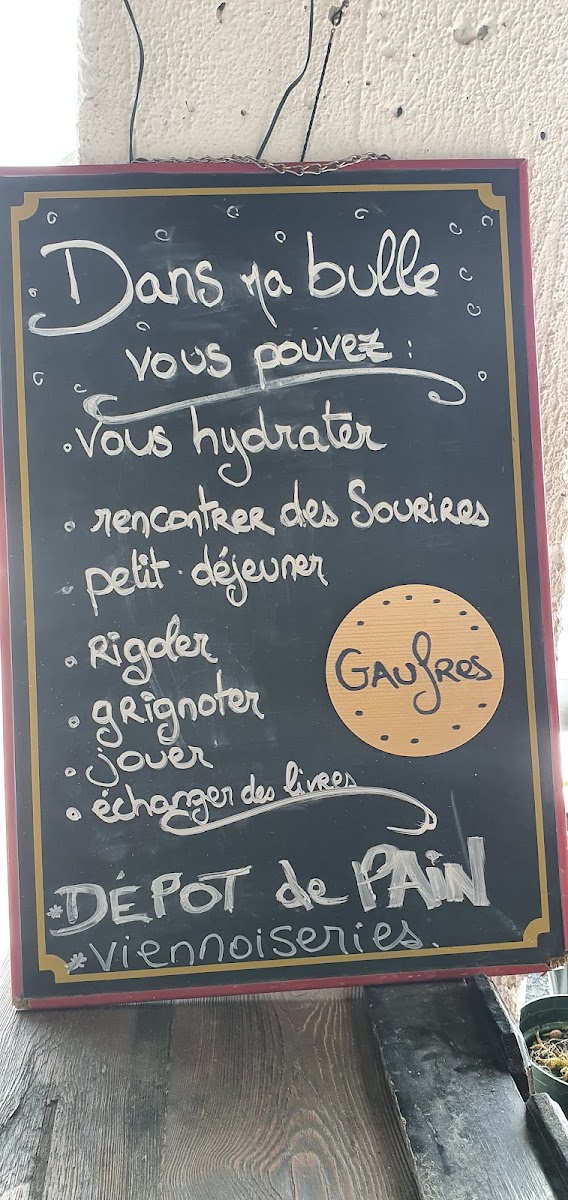 Dans ma bulle
vous pouvez :
• vous hydrater
• rencontrer des Sourires
• petit déjeuner
• Rigoler
• gRignoter
• jouer
• échanger des livres
GAUfRes
* DÉPOT de PAiN
* viennoiseries.